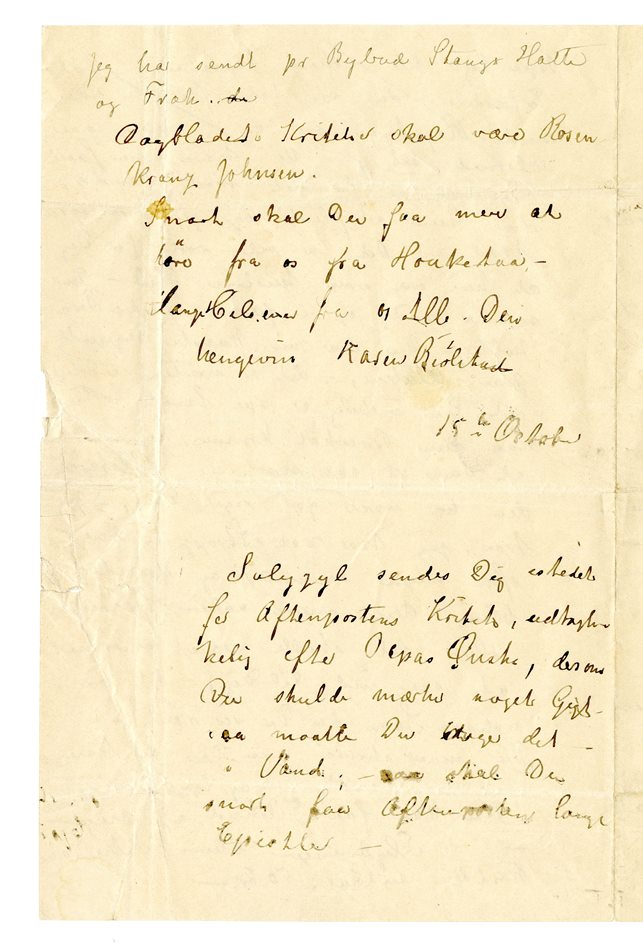 jeg har sendt pr Bybud Stangs Hatte
og Frak. du
Dagbladets Kritiker skal være Rosen
kranz Johnsen.
Snart skal Du faa mere at
höre fra os fra Haukeland –
fra os Alle. Din
hengivne Karen Bjölstad
15de October
sendes Dig istedet
for Aftenpostens Kritik, udtrykke
kelig efter Papas Önske, dersom
Du skulde mærke noget Gigt –
saa maatte Du tage det –
i Vand; – saa skal Du
snart faa Aftenposten lange
Epistler –